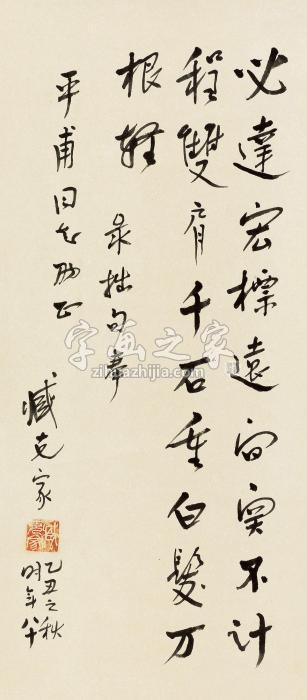 必達宏標遠不計
程雙肩千石重白髮万
根輕 录拙句奉
平甫同志正
臧克家
乙丑之秋
时年八十
字画之家
zihuazhijia.com